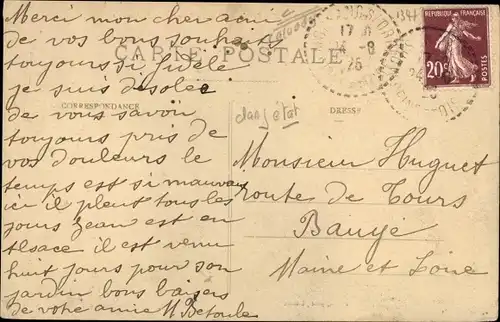 Merci mon cher ami
de vos bons souhaits
CARTE POSTALE
toujours si fidèle
je suis désolée
CORRESPONDANCE
de vous savoir
toujours pris de
vos douleurs le
temps est si mauvais
ici il pleut tous les
jours Jean est en
Alsace il est venu
huit jours pour son
jardin bons baisers
de votre amie M Betoule
dans l'état
Monsieur Huguet
route de Tours
Baugé
Maine et Loire
REPUBLIQUE FRANÇAISE
20c
POSTES